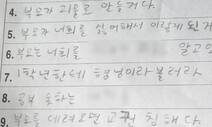 4. 부모가 괴물로 만든거다.
5. 부모가 너희를 싫어해서 이렇게 된거
6. 부모는 너희를 알고있
7. 1학년한테 형님이라 불러라
8. 공부 못하는
9. 부모를 데려오면 교권 침해다